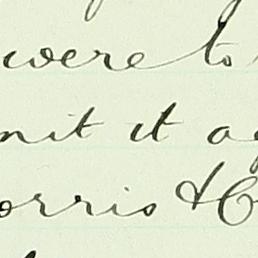 were to
mit it a
orris &C